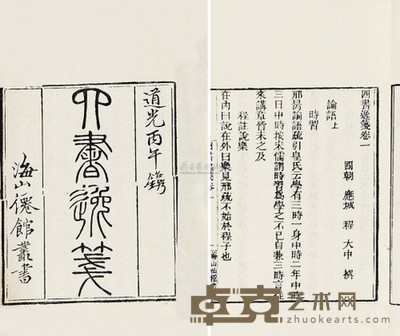 道光丙午鐫
四書逸箋
海山僊館叢書
四書逸箋卷一
國朝 應城 程大中 撰
論語上
時習
邢昺論語疏引皇氏云學有三時一身中時二年中時
三日中時按宋儒謂時習爲學之不已自與三時之說
來講章皆未之及
程註說樂
在內曰說在外曰樂見邢疏不始於程子也
卓克艺术网
www.zhuokearts.com